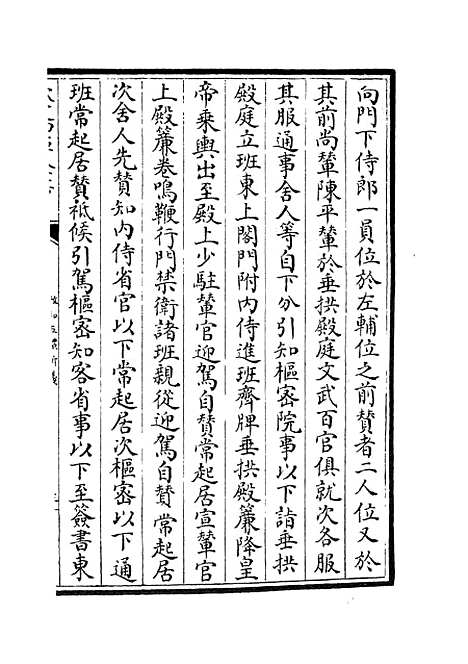 向門下侍郎一員位於左輔位之前贊者二人位又於
其前尚輦陳平輦於垂拱殿庭文武百官俱就次各服
其服通事舍人等自下分引知樞密院事以下詣垂拱
殿庭立班東上閤門附内侍進班齊牌垂拱殿簾降皇
帝乘輿出至殿上少駐輦官迎駕自贊常起居宣輦官
上殿簾卷鳴鞭行門禁衛諸班親從迎駕自贊常起居
次舍人先贊知内侍省官以下常起居次樞密以下通
班常起居贊祗候引駕樞密知客省事以下至簽書東